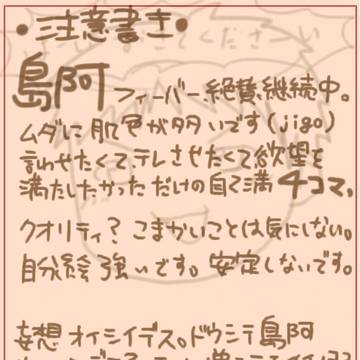 ●注意書き●
島阿 フィーバー、絶賛継続中。
ムダに肌色が多いです(jigo)
言わせたくて、テレさせたくて欲望を
満たしたかっただけの自己満4コマ。
クオリティ？こまかいことは気にしない。
自分絵強いです。安定しないです。
妄想オイシイデス。ドウシテ島阿